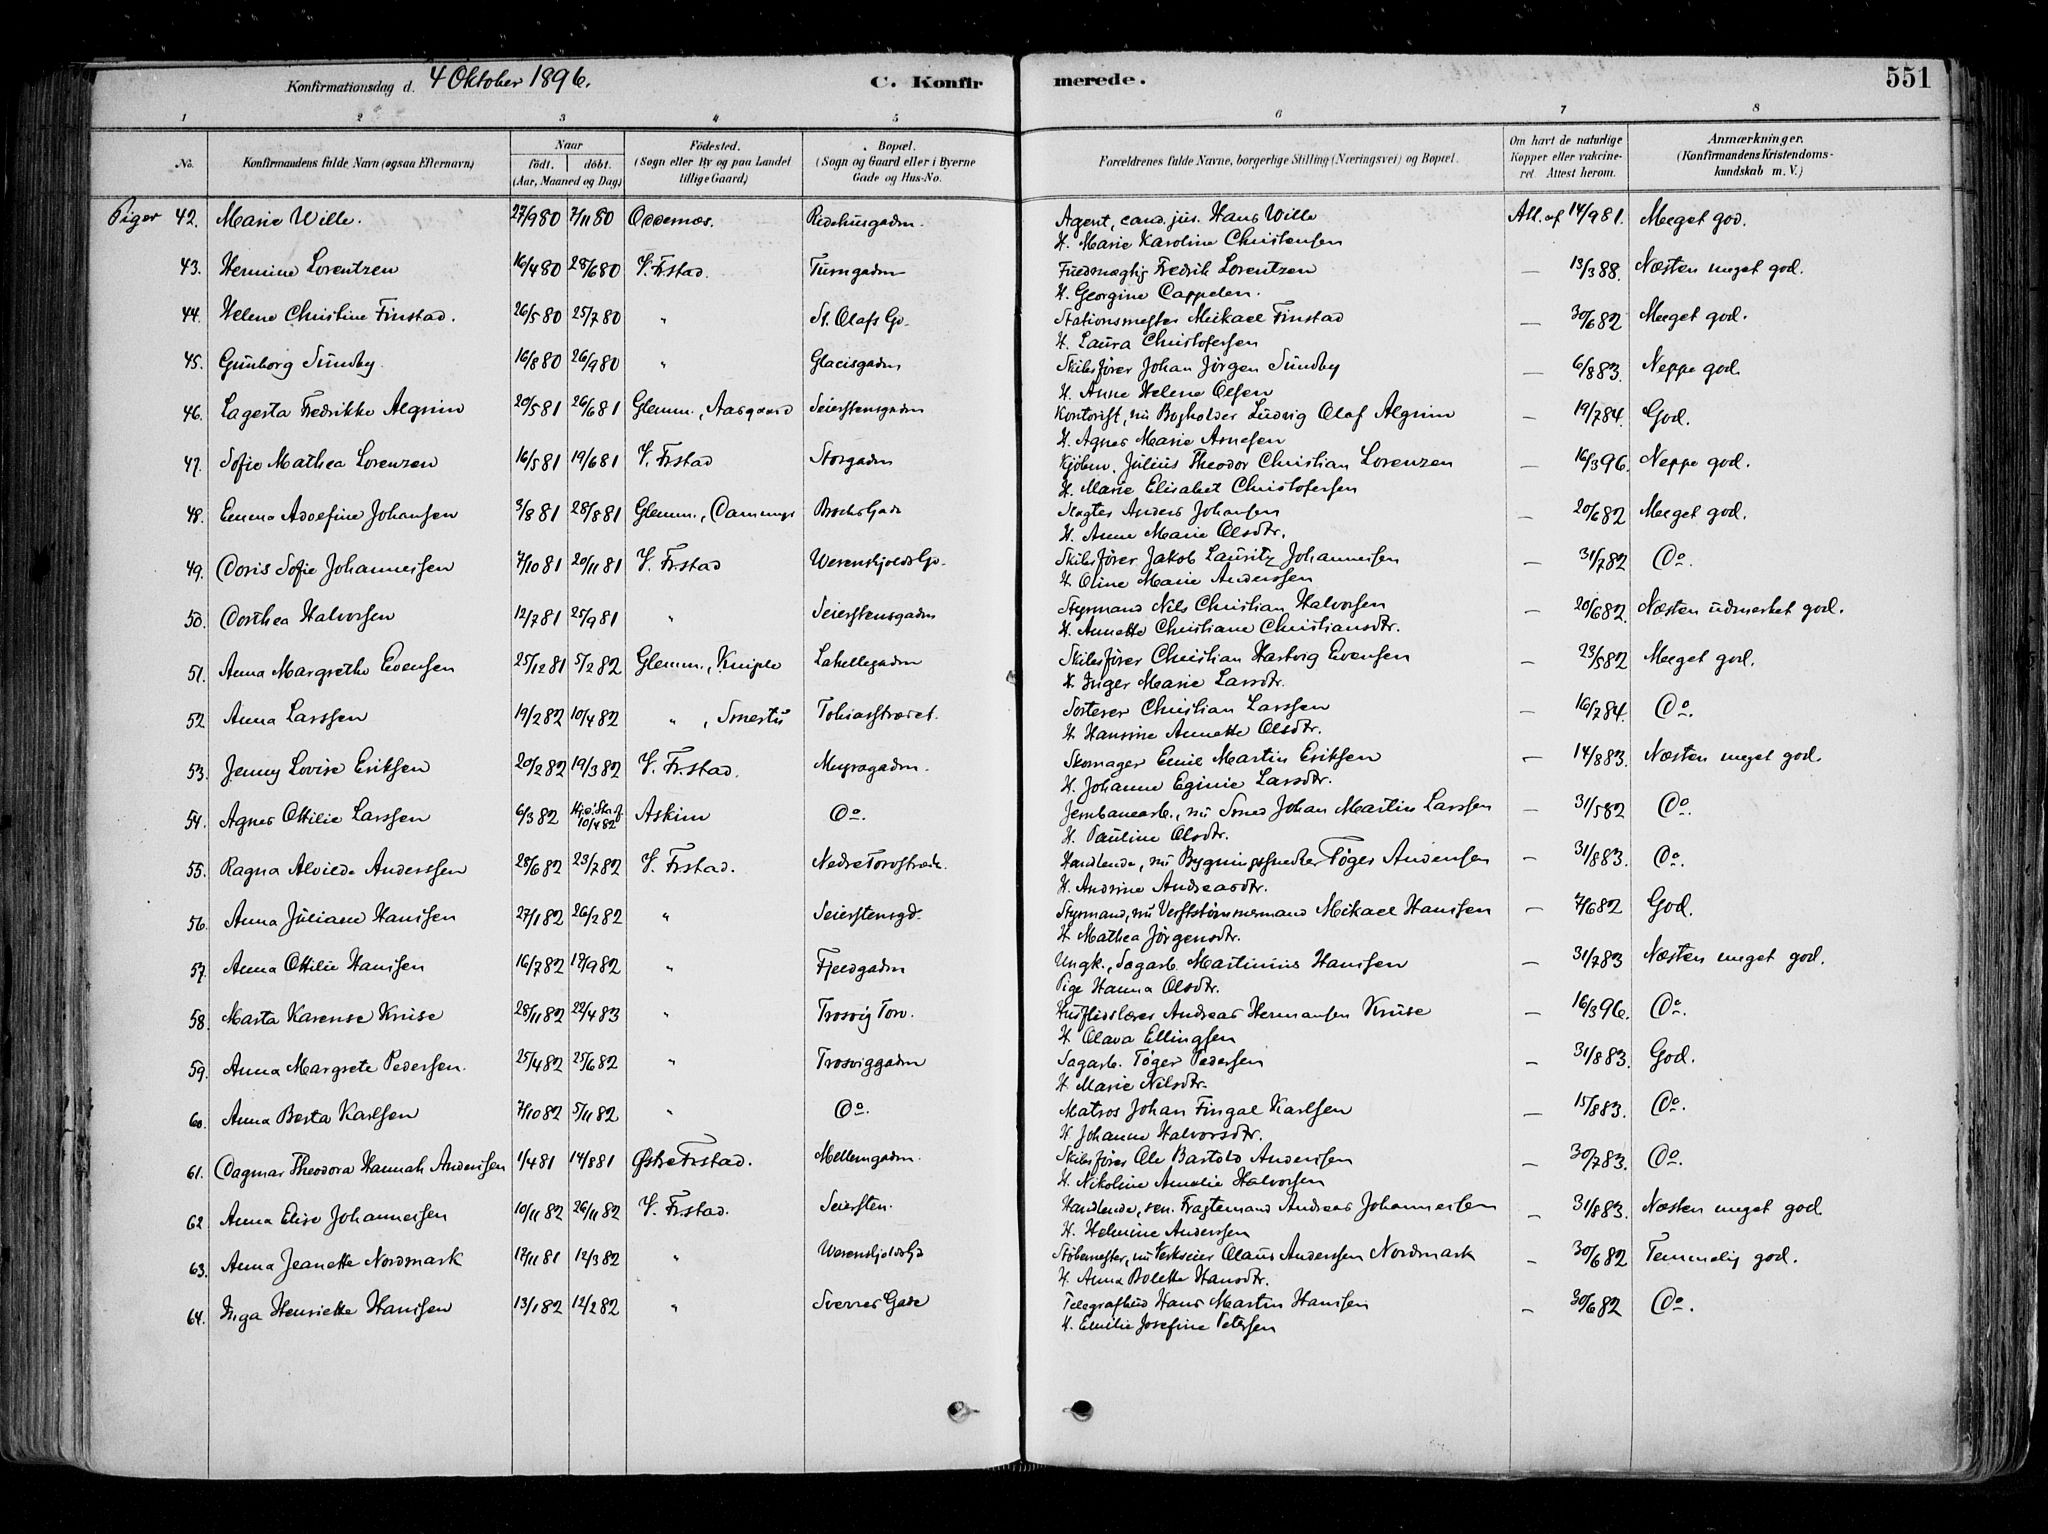 Konfirmationsdag d. 4 Oktober 1896.
C. Konfirmerede.
551
1 2 3 4 5 6 7 8
No. Konfirmandens fulde Navn (ogsaa Efternavn) Naar født. døbt. (Aar, Maaned og Dag) Födested. (Sogn eller By og paa Landet tillige Gaard) Bopæl. (Sogn og Gaard eller i Byerne Gade og Hus-No. Forældrenes fulde Navne, borgerlige Stilling (Næringsvei) og Bopæl. Om havt de naturlige Kopper eller vakcineret. Attest herom. Anmærkninger. (Konfirmandens Kristendomskundskab m. V.)
Piger 42. Marie Wille. 27/9 80 7/11 80 Oddernæs. Ridehusgaden. Agent, cand. jur. Hans Wille Att. af 14/9 81. Meget god.
H. Marie Karoline Christensen
43. Hermine Lorentzen 16/4 80 28/6 80 V. Fr.stad. Turngaden Fuldmægtig Fredrik Lorentzen — 13/3 88. Næsten meget god.
H. Georgine Cappelen.
44. Helene Christine Finstad. 26/5 80 25/7 80 " St. Olafs Gd. Stationsmester Mikael Finstad — 30/6 82 Meget god.
H. Laura Christofersen
45. Gunborg Sundby. 16/8 80 26/9 80 " Glacisgaden Skibsfører Johan Jørgen Sundby — 6/8 83. Neppe god.
H. Anne Helene Olsen
46. Lagerta Fredrikke Algrim 20/5 81 26/6 81 Glemm., Aasgaard Seierstensgaden Kontorist, nu Bogholder Ludvig Olaf Algrim — 19/7 84. God.
H. Agnes Marie Arnesen
47. Sofie Mathea Lorenzen 16/5 81 19/6 81 V. Fr.stad Storgaden Kjøbm. Julius Theodor Christian Lorenzen — 16/3 96. Neppe god.
H. Marie Elisabet Christofersen
48. Emma Adolfine Johansen 3/8 81 28/8 81 Glemm., Dammyr Brochs Gade Slagter Anders Johansen — 20/6 82 Meget god.
H. Anne Marie Olsdtr.
49. Doris Sofie Johannesen 7/10 81 20/11 81 V. Fr.stad Werenskjolds Gd. Skibsfører Jakob Lauritz Johannesen — 31/7 82 Do.
H. Oline Marie Anderssen
50. Dorthea Halvorsen 12/7 81 25/9 81 " Seierstensgaden Styrmand Nils Christian Halvorsen — 20/6 82. Næsten udmerket god.
H. Annette Christiane Christiansdtr.
51. Anna Margrethe Evensen 25/12 81 5/2 82 Glemm., Kniple Lahellegaden Skibsfører Christian Hartvig Evensen — 23/5 82 Meget god.
H. Inger Marie Larsdtr.
52 Anna Larssen 19/2 82 10/4 82 " , Smertu Tobiasstrædet. Sorterer Christian Larssen — 16/7 84. Do.
H. Hansine Annette Olsdtr.
53. Jenny Lovise Eriksen 20/2 82 19/3 82 V. Fr.stad. Myragaden. Skomager Emil Martin Eriksen — 14/8 83. Næsten meget god.
H. Johanne Eginie Larsdtr.
54. Agnes Ottilie Larssen 6/3 82 10/4 82 Askim Do. Jernbanearb., nu Smed Johan Martin Larssen — 31/5 82 Do.
H. Pauline Olsdtr.
55. Ragna Alvilde Anderssen 28/6 82 23/7 82 V. Fr.stad. Nedre Torvstræde. Handlende, nu Bygningssnedker Tøger Andersen — 31/8 83. Do.
H. Andrine Andreasdtr.
56. Anna Juliane Hanssen 27/1 82 26/2 82 " Seierstensgd. Styrmand, nu Verftstømmermand Mikael Hanssen — 7/6 82 God.
H. Mathea Jørgensdtr.
57. Anna Ottilie Hanssen 16/7 82 17/9 82 " Fjeldgaden Ungk., Sagarb. Martinius Hanssen — 31/7 83 Næsten meget god.
Pige Hanna Olsdtr.
58. Marta Karense Kruse 28/11 82 22/4 83 " Trosvig Torv. Husflidslærer Andreas Hermansen Kruse — 16/3 96. Do.
H. Olava Ellingsen
59. Anna Margrete Pedersen. 25/4 82 25/6 82 " Trosviggaden Sagarb. Tøger Pedersen — 31/8 83. God.
H. Marie Nilsdtr.
60. Anna Berta Karlsen 7/10 82 5/11 82 " Do. Matros Johan Fingal Karlsen — 15/8 83. Do.
H. Johanne Halvorsdtr.
61. Dagmar Theodora Hannah Andersen 1/4 81 14/8 81 Østre Fr.stad. Mellemgaden. Skibsfører Ole Bartold Andersen — 30/7 83. Do.
H. Nikoline Amalie Halvorsen
62 Anna Elise Johannesen 10/11 82 26/11 82 V. Fr.stad. Seiersten. Handlende, sen. Fragtemand Andreas Johannesen — 31/8 83. Næsten meget god
H. Helmine Anderssen
63. Anna Jeanette Nordmark 17/11 81 12/3 82 " Werenskjolds Gd Støbemester, nu Verkseier Olaus Anderssen Nordmark — 30/6 82 Temmelig god.
H. Anna Bolette Hansdtr.
64. Inga Henriette Hanssen 13/1 82 12/2 82 " Sverres Gade Telegrafbud Hans Martin Hanssen — 30/6 82 Do.
H. Emilie Josefine Petersen